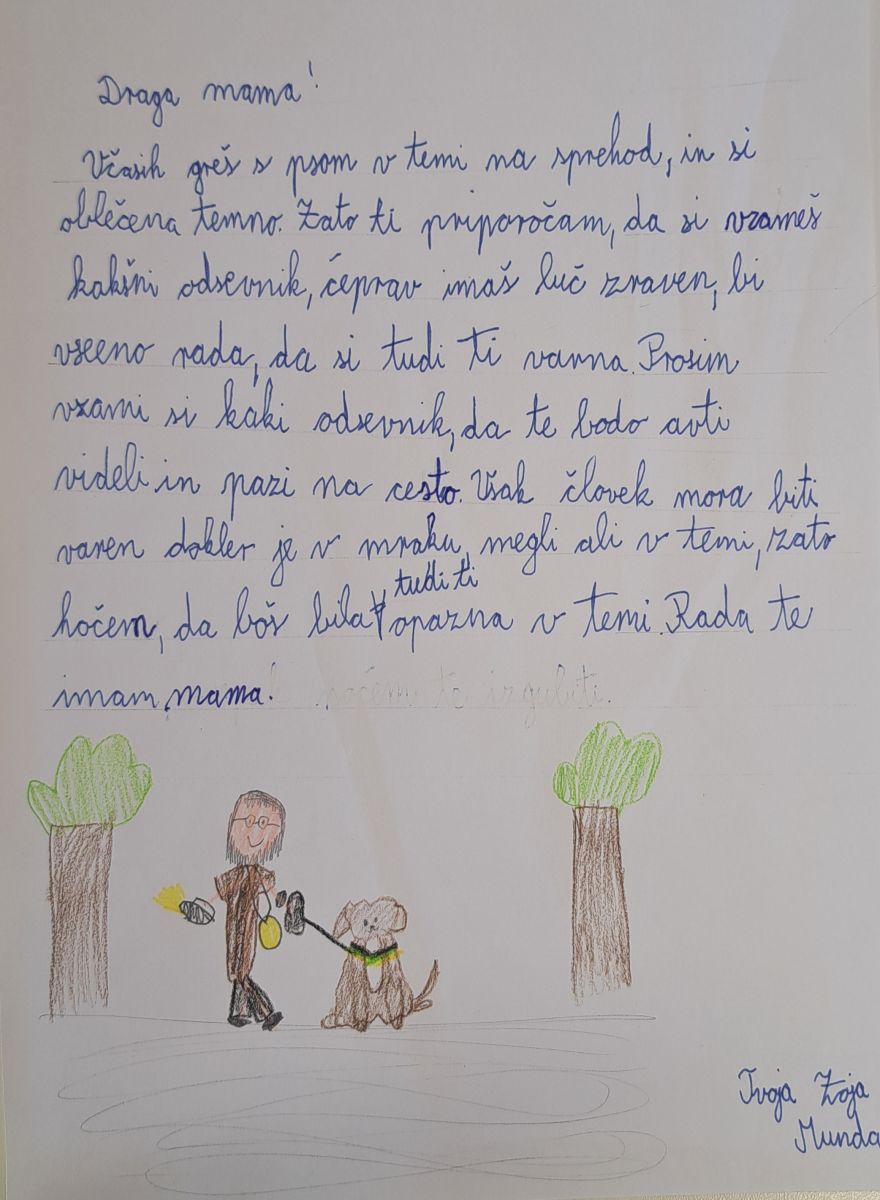 Draga mama!
Včasih greš s psom v temi na sprehod, in si
oblečena temno. Zato ti priporočam, da si vzameš
kakšni odsevnik, čeprav imaš luč zraven, bi
vseeno rada, da si tudi ti varna. Prosim
vzami si kaki odsevnik, da te bodo avti
videli in pazi na cesto. Vsak človek mora biti
varen dokler je v mraku, megli ali v temi, zato
tudi ti
hočem, da boš bila opazna v temi. Rada te
imam, mama! hočem te izgubiti.
Tvoja Zoja
Munda